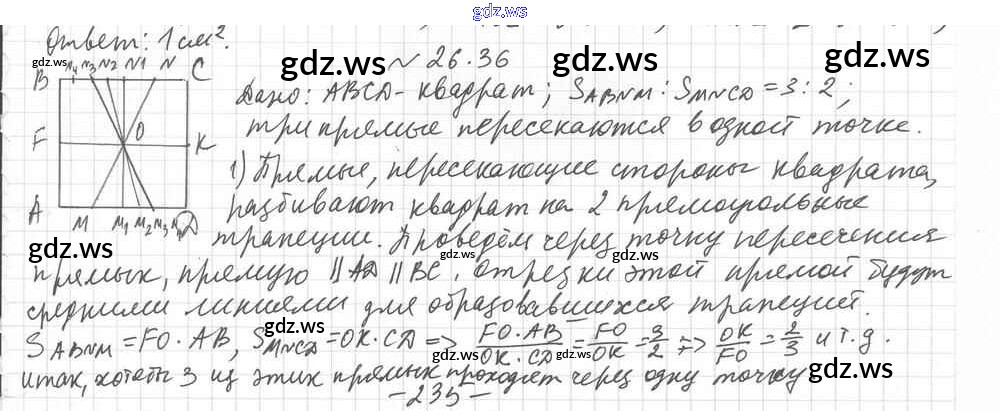 gdz.ws
Ответ: 1 см².
№ 26.36
gdz.ws gdz.ws gdz.ws gdz.ws
B N₄ N₃ N₂ N1 N C
Дано: ABCD - квадрат; S_ABNM : S_MNCD = 3 : 2;
три прямые пересекаются в одной точке.
F O K
1) Прямые, пересекающие стороны квадрата,
A M M₁ M₂ M₃ D
разбивают квадрат на 2 прямоугольные
трапеции. Проведём через точку пересечения
gdz.ws gdz.ws gdz.ws gdz.ws
прямых, прямую || AD || BC. Отрезки этой прямой будут
средними линиями для образовавшихся трапеций.
S_ABNM = FO · AB, S_MNCD = OK · CD => FO · AB / OK · CD = FO / OK = 3/2 => OK / FO = 2/3 и т.д.
gdz.ws gdz.ws gdz.ws gdz.ws
Итак, хотя бы 3 из этих прямых проходят через одну точку
- 235 -